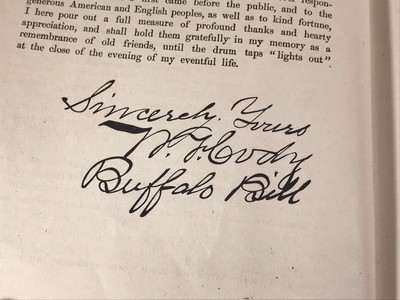 first came before the public, and to the
generous American and English peoples, as well as to kind fortune,
I here pour out a full measure of profound thanks and hearty
appreciation, and shall hold them gratefully in my memory as a
remembrance of old friends, until the drum taps "lights out"
at the close of the evening of my eventful life.
Sincerely Yours
W. F. Cody
Buffalo Bill